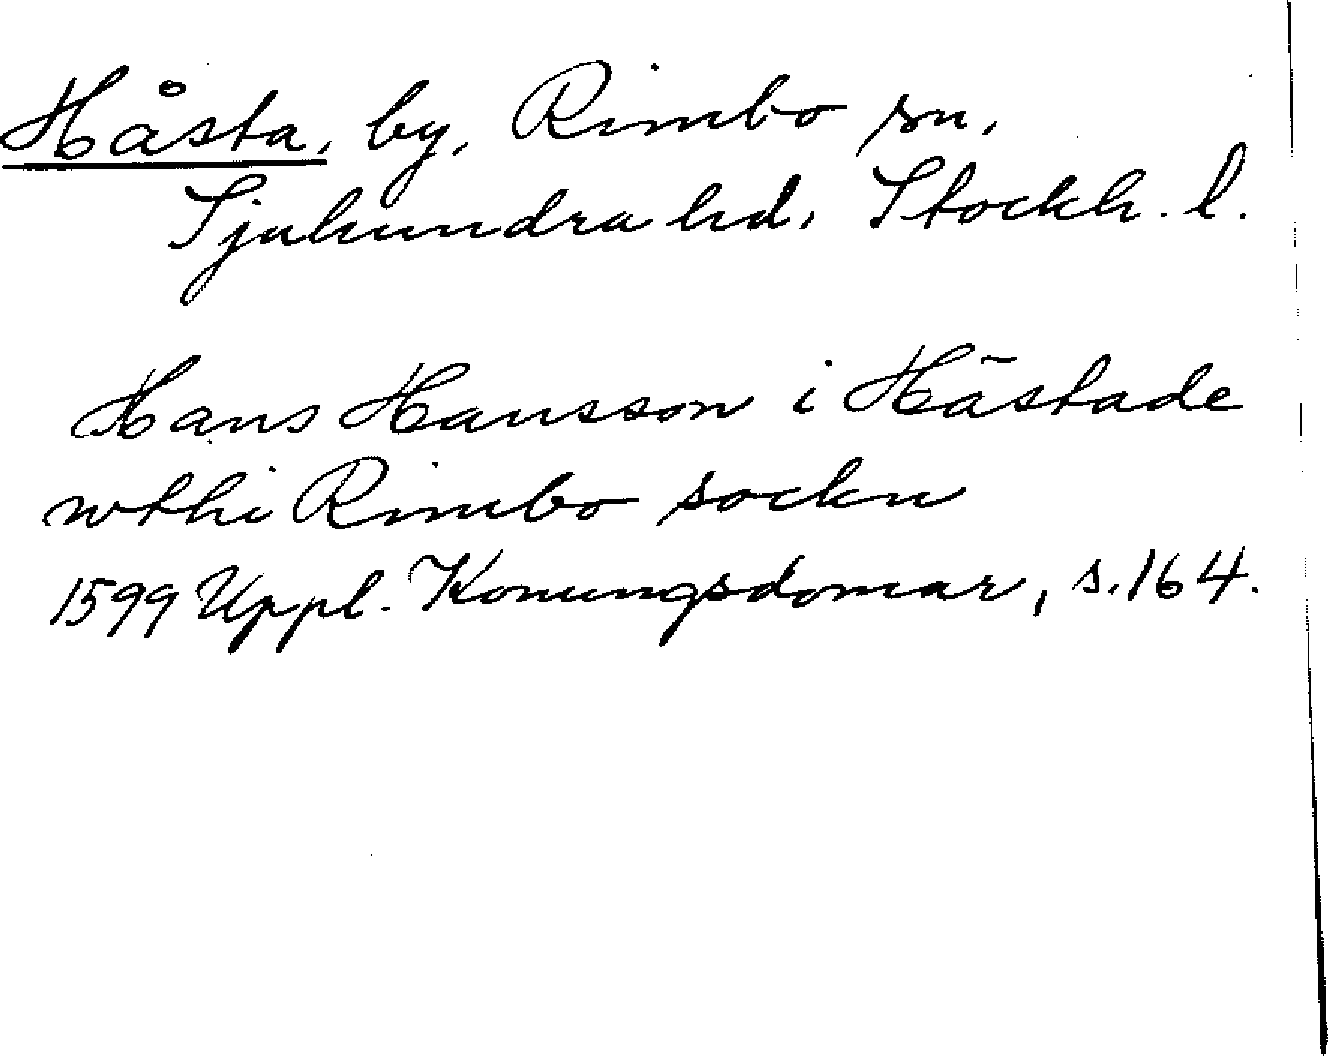 Håsta, by, Rimbo sn,
Sjuhundra hd, Stockh. l.
Hans Hansson i Hästade
wthi Rimbo sockn
1599 Uppl. Konungsdomar, s. 164.